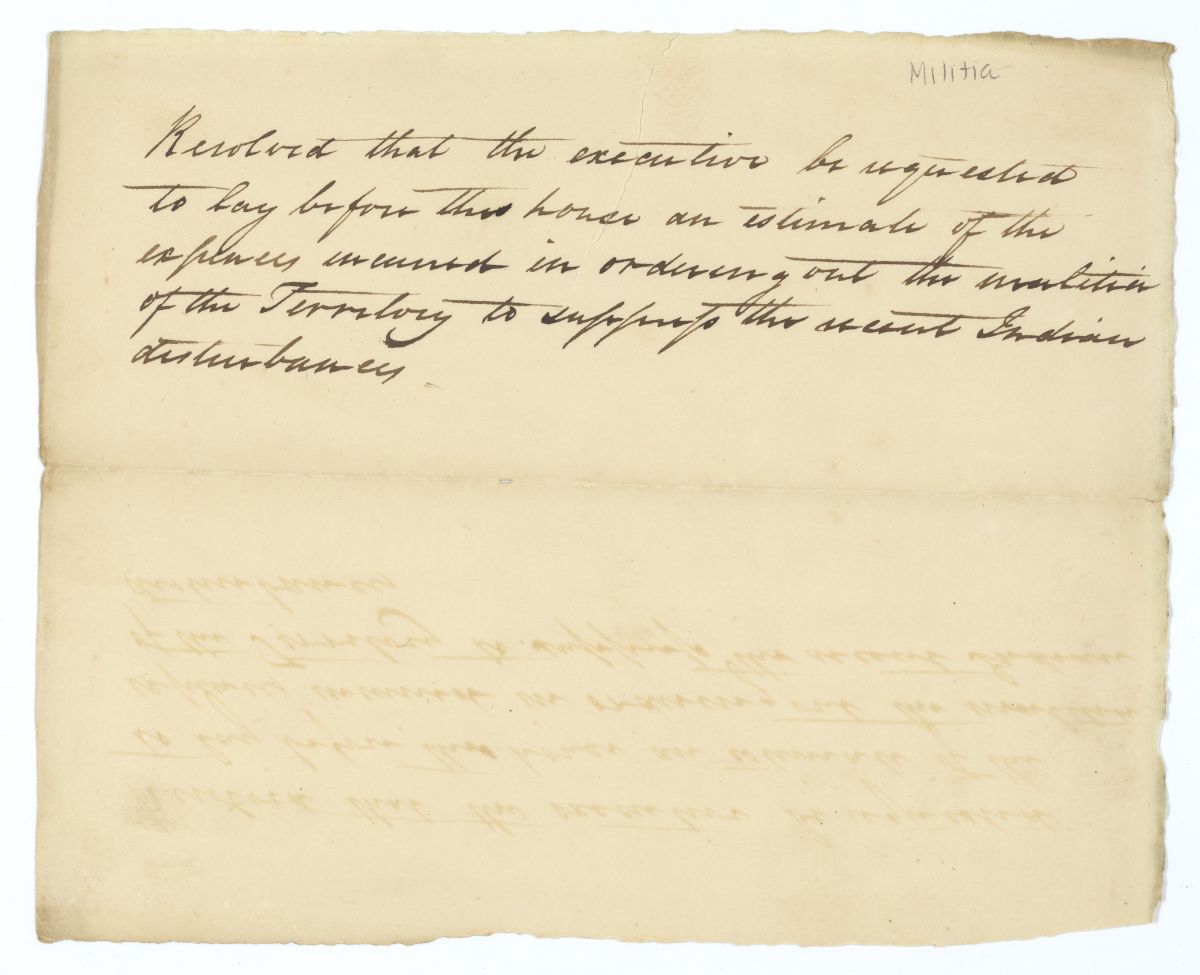 Militia
Resolved that the executive be requested
to lay before this house an estimate of the
expences incurred in ordering out the militia
of the Territory to suppress the recent Indian
disturbances